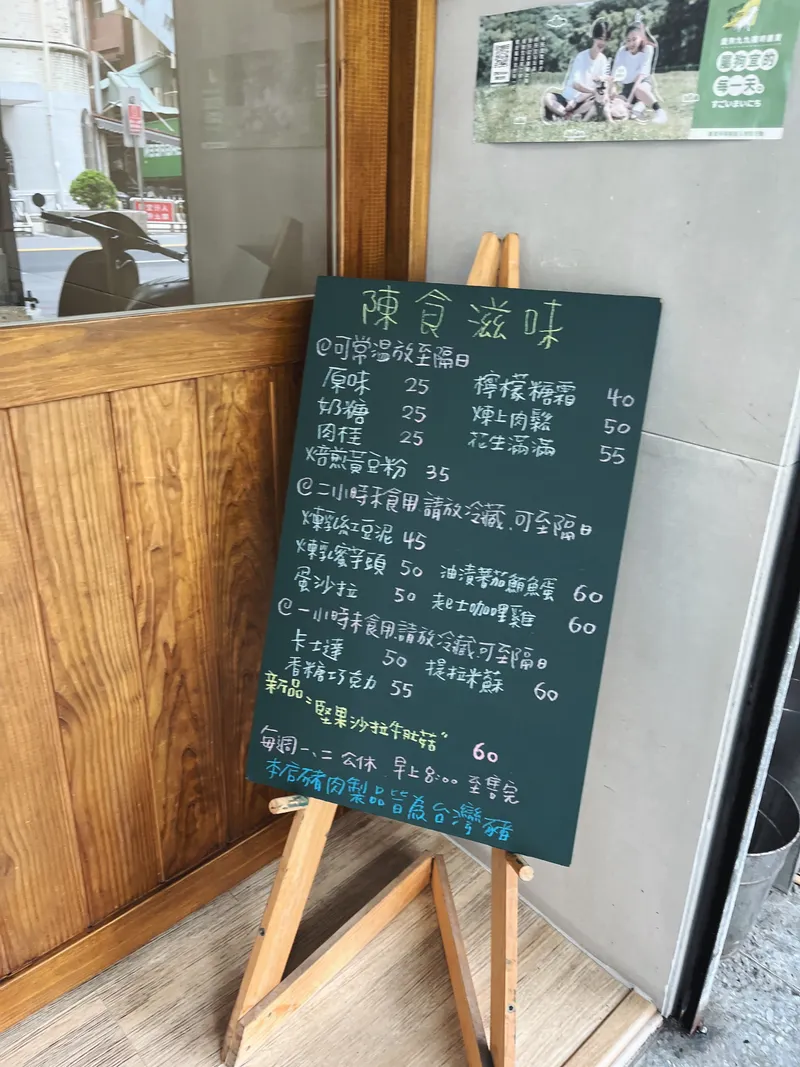 萬物宜的
每一天。
すごいまいにち
陳食滋味
@可常溫放至隔日
原味 25 檸檬糖霜 40
奶糖 25 煉上肉鬆 50
肉桂 25 花生滿滿 55
焙煎黃豆粉 35
@二小時未食用,請放冷藏,可至隔日
煉乳紅豆泥 45
煉乳蜜芋頭 50 油漬蕃茄鮪魚蛋 60
蛋沙拉 50 起士咖哩雞 60
@一小時未食用,請放冷藏,可至隔日
卡士達 50 提拉米蘇 60
香糖巧克力 55
新品:堅果沙拉牛肚菇" 60
每週一、二公休 早上8:00 至售完
本店豬肉製品皆為台灣豬